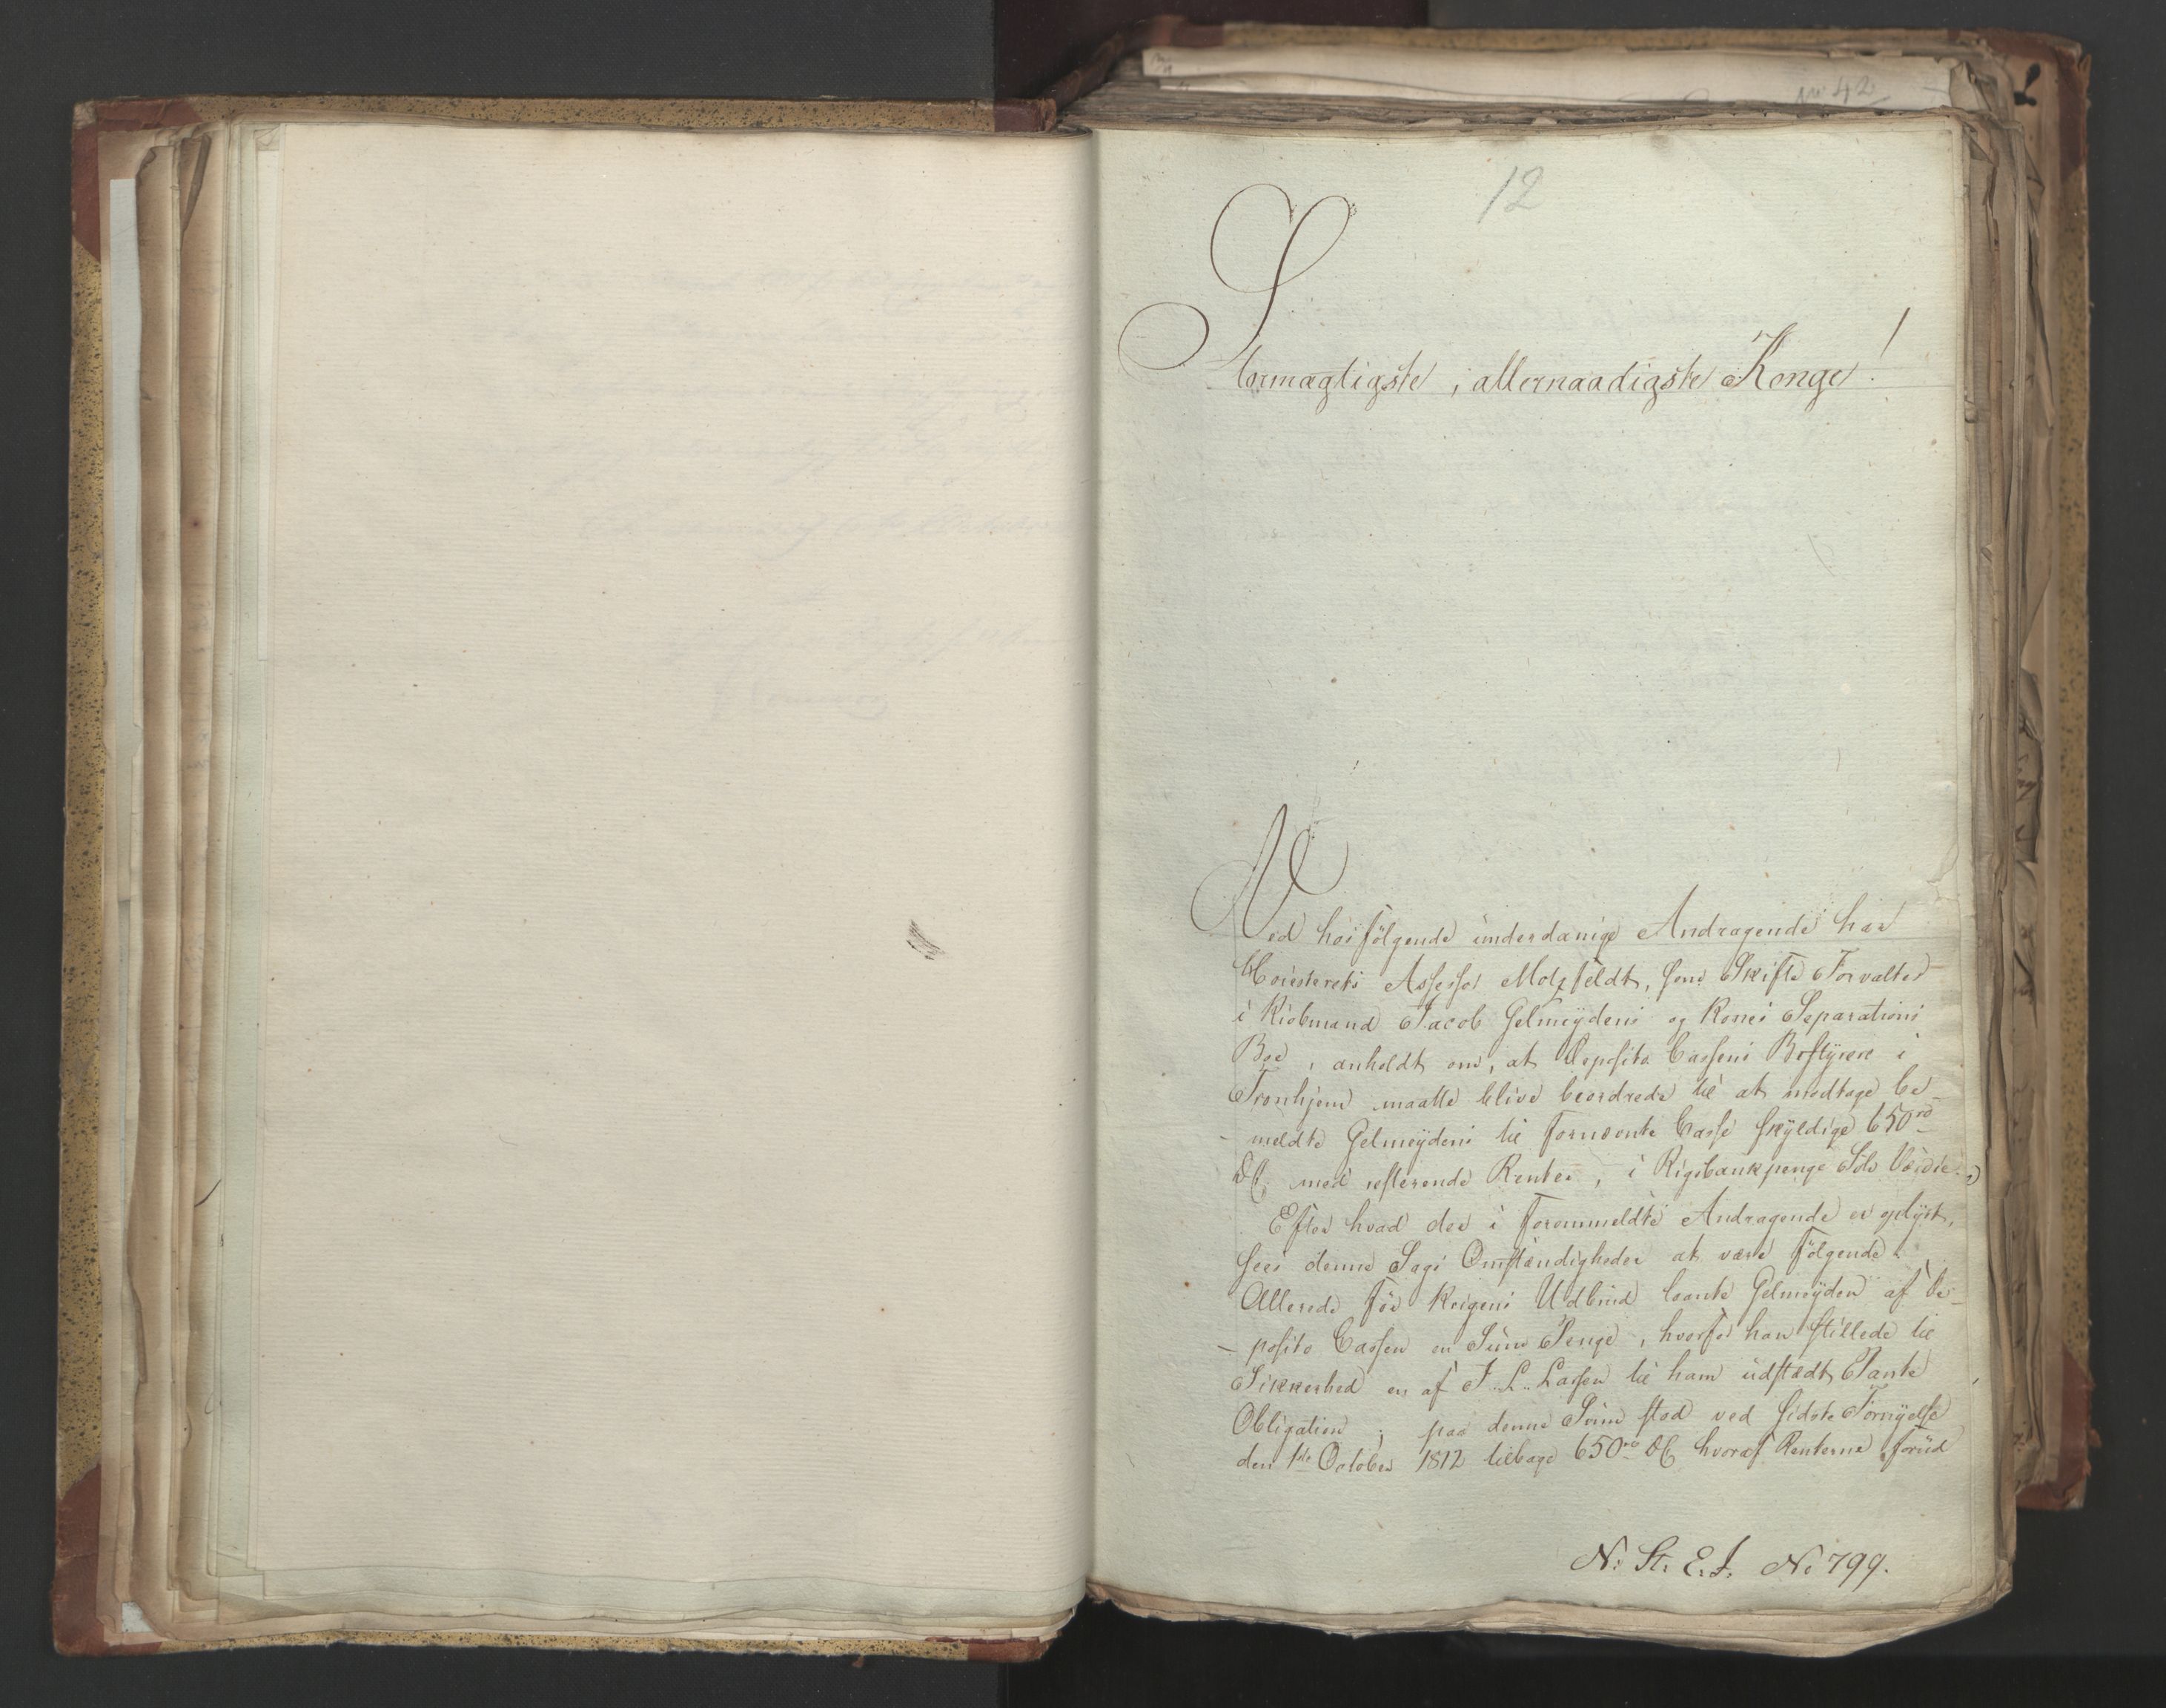 No 42
12
Stormægtigste, allernaadigste Konge!
Ved hosfölgende underdanige Andragende har
Höiesterets Assessor Motzfeldt, som Skifte Forvalter
i Kiöbmand Jacob Gelmeÿdens og Kones Separations
Boe, anholdt om, at Deposito Cassens Bestÿrere i
Tronhjem maatte blive beordrede til at modtage be
- meldte Gelmeÿdens til fornævnte Casse skÿldige 650 rd
DC. med resterende Renter, i Rigsbankpenge Sölv Værdie.
Efter hvad der i forommeldte Andragende er oplÿst,
sees denne Sags Omstændigheder at være fölgende:
Allerede för Krigens Udbrud laante Gelmeÿden af De
- posito Cassen en Sum Penge, hvorfor han stillede til
Sikkerhed en af J. L. Lassen til ham udstædt Pante
Obligation; paa denne Sum stod ved sidste Fornÿelse
den 1ste October 1812 tilbage 650 rd DC hvoraf Renterne forud
N: St. E. J. No 799.